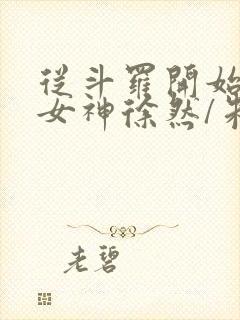 從斗羅開始
女神徐然/朱
老碧